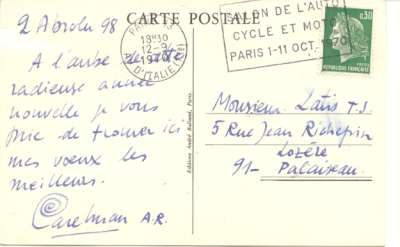 2 Absolu 98
CARTE POSTALE
PARIS
18H30
12-9
1970
D'ITALIE (13e)
SALON DE L'AUTO
CYCLE ET MOTO
PARIS 1-11 OCT. 1970
0,30
REPUBLIQUE FRANCAISE
A l'aube de cette
radieuse année
nouvelle je vous
prie de trouver ici
mes vœux les
meilleurs.
Carelman A.R.
Editions André Barret, Paris
Monsieur Latis T.S.
5 Rue Jean Richepin
Lozère
91- Palaiseau